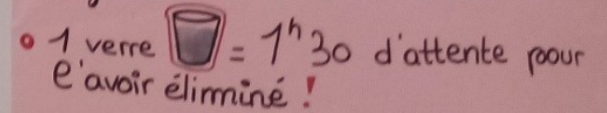 1 verre = 1h30 d'attente pour
l'avoir éliminé !